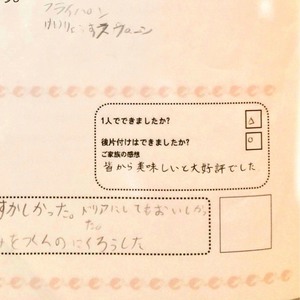 フライパン
けいりょうスプーン
1人でできましたか？
△
後片付けはできましたか？
○
ご家族の感想
皆から美味しいと大好評でした
ずかしかった。ドリアにしてもおいしかっ
た。
をつくんのにくろうした